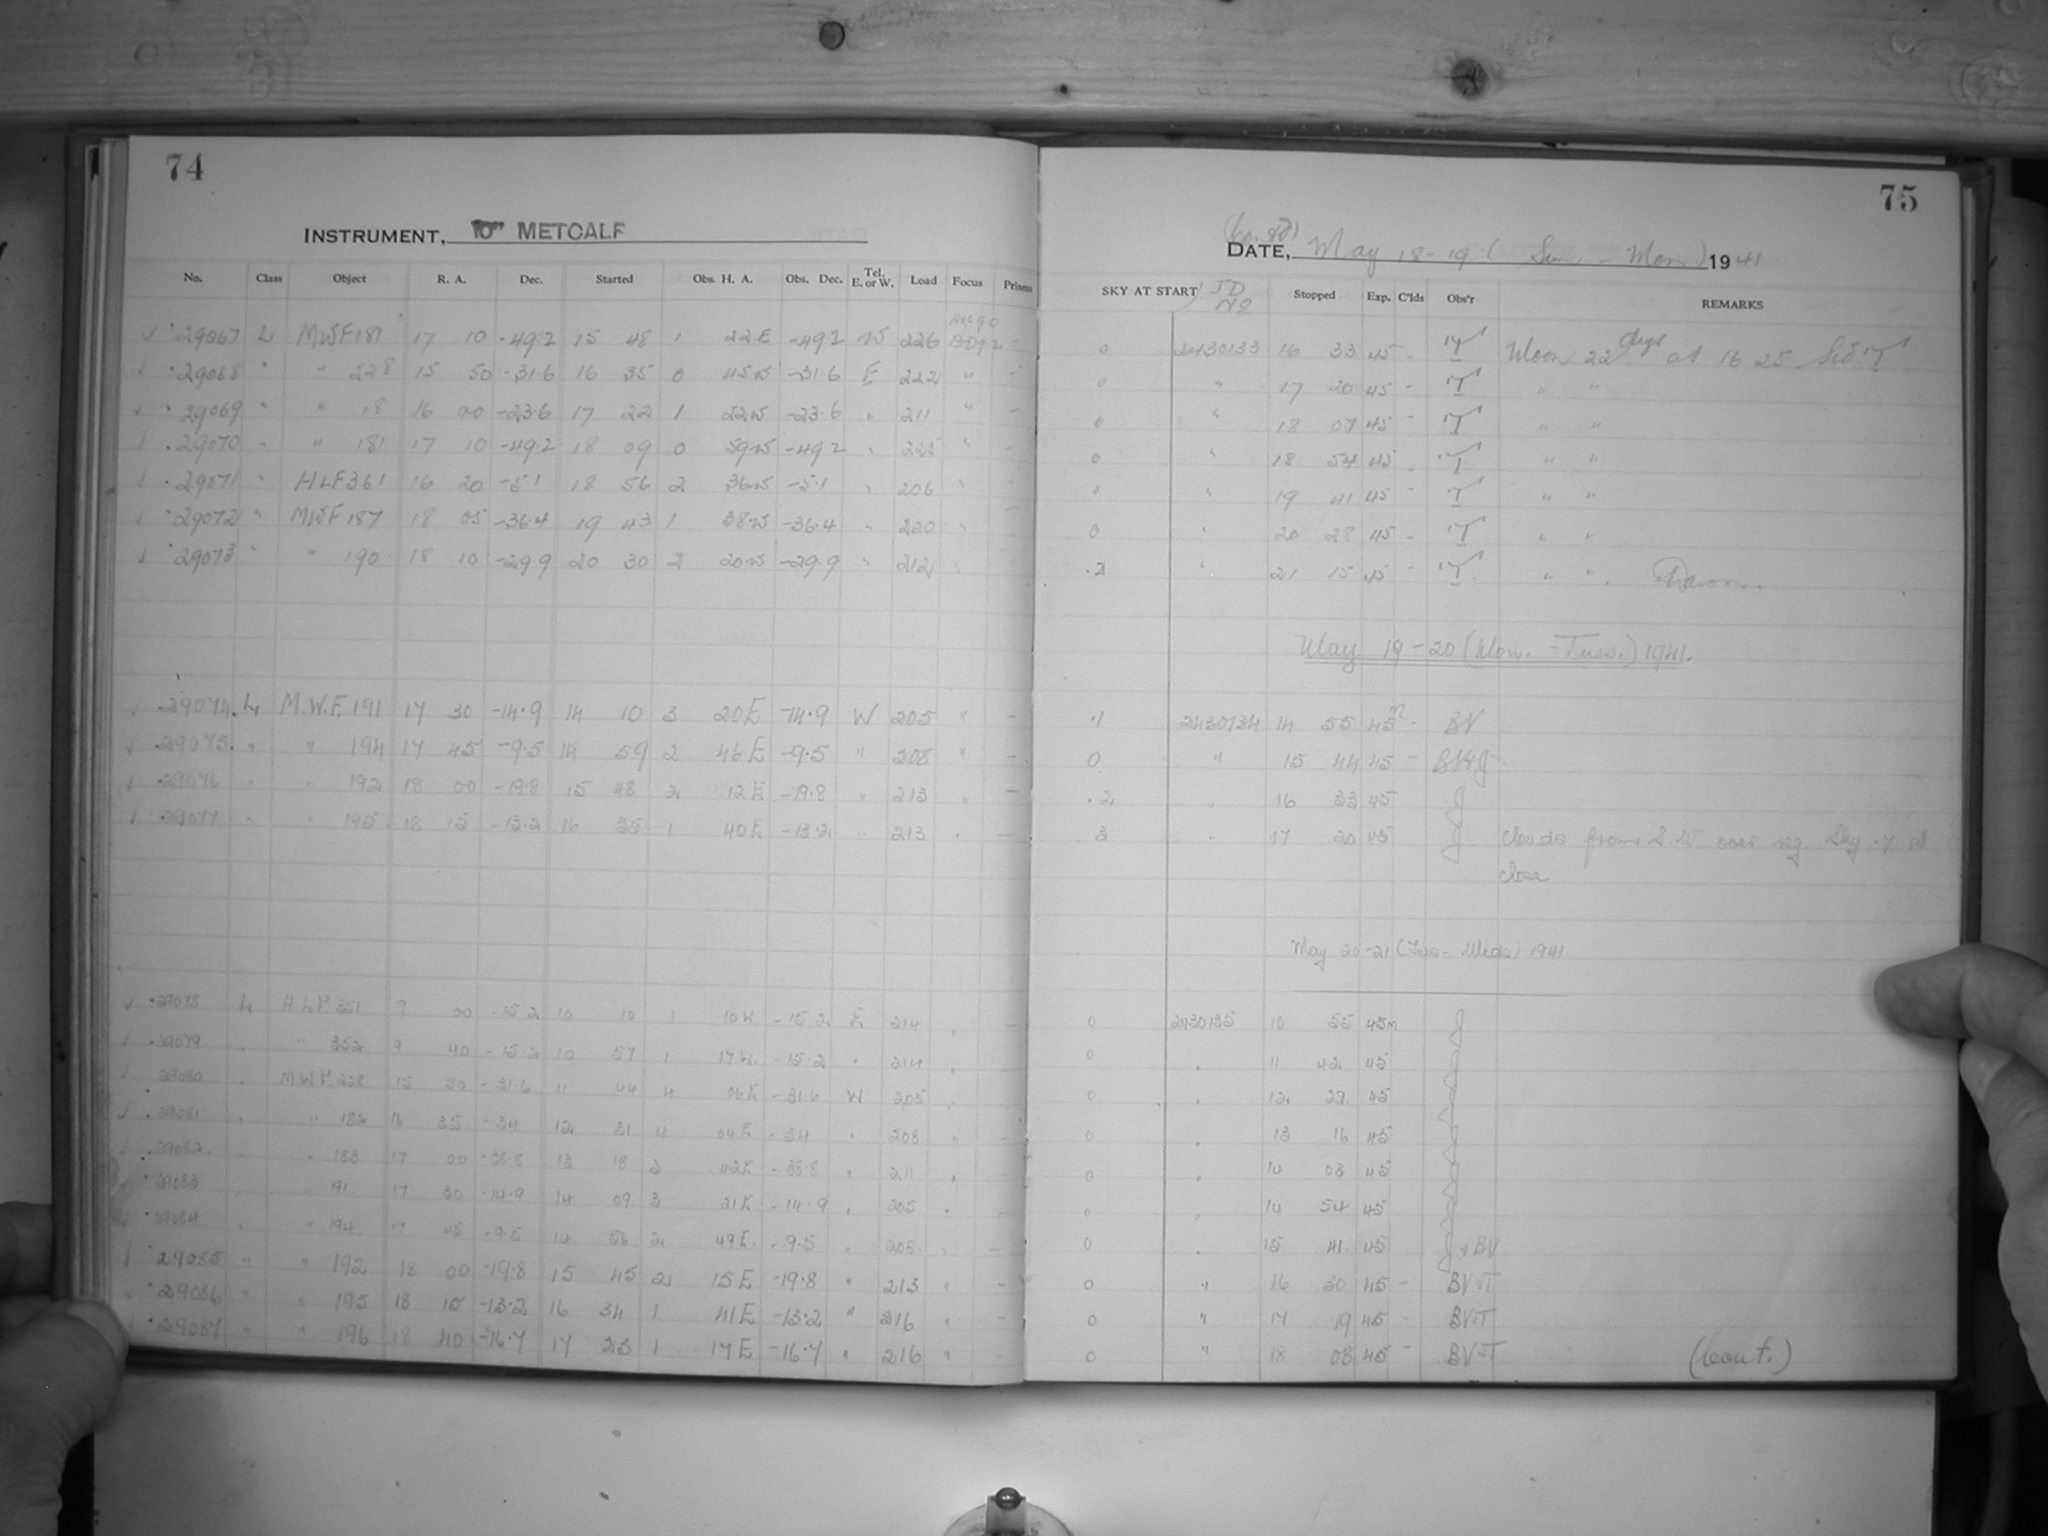 74
INSTRUMENT, 10" METCALF
No. Class Object R. A. Dec. Started Obs. H. A. Obs. Dec. Tel. E. or W. Load Focus Prisms
29067 L MWF 181 17 10 -49.2 15 48 1 22E -49.2 W 226
29068 " " 228 15 50 -31.6 16 35 0 45W -31.6 E 222 "
29069 " " 18 16 00 -23.6 17 22 1 22W -23.6 " 211 " -
29070 " " 181 17 10 -49.2 18 09 0 59W -49.2 " 225 " -
29071 " HLF 361 16 20 -5.1 18 56 2 36W -5.1 " 206 "
29072 " MWF 187 18 05 -36.4 19 43 1 38W -36.4 " 220 "
29073 " " 190 18 10 -29.9 20 30 2 20W -29.9 " 212 "
29074. L M.W.F. 191 17 30 -14.9 14 10 3 20E -14.9 W 205 " -
29075. " " 194 17 45 -9.5 14 59 2 46E -9.5 " 208 " -
29076 " " 192 18 00 -19.8 15 48 2 12E -19.8 " 213 " -
29077 " " 195 18 15 -13.2 16 35 1 40E -13.2 " 213 " -
29078 L HLF 351 9 00 -15.2 10 10 1 10W. -15.2 E 214 " -
29079 " " 352 9 40 -15.2 10 57 1 17W. -15.2 " 214 " -
29080 " MWF. 228 15 50 -31.6 11 44 4 06E -31.6 W 205 " -
29081 " " 182 16 35 -34 12 31 4 04E -34 " 208 " -
29082 " " 183 17 00 -38.8 13 18 3 42E -38.8 " 211 " -
29083 " " 191 17 30 -14.9 14 09 3 21E -14.9 " 205 " -
29084 " " 194 17 45 -9.5 14 56 2 49E. -9.5 " 208 " -
29085 " " 192 18 00 -19.8 15 45 2 15E -19.8 " 213 " -
29086 " " 195 18 15 -13.2 16 34 1 41E -13.2 " 216 " -
29087 " " 196 18 40 -16.7 17 23 1 17E -16.7 " 216 " -
75
(Cont'd)
DATE, May 18-19 (Sun - Mon) 1941
SKY AT START JD No Stopped Exp. C'lds Obs'r REMARKS
0 2430133 16 33 45 - T Moon 22 days at 16 25 Sid. T
0 " 17 20 45 - T " "
0 " 18 07 45 - T " "
0 " 18 54 45 - T " "
0 " 19 41 45 - T " "
0 " 20 28 45 - T " "
.2 " 21 15 45 - T " " Dawn.
May 19-20 (Mon. - Tues.) 1941.
.1 2430134 14 55 45m - BV
0 " 15 44 45 - BV+J
.2 " 16 33 45 J
3 " 17 20 45 J clouds from S.W. over reg. Sky .7 at
close
May 20-21 (Tues - Weds) 1941.
0 2430135 10 55 45m J
0 " 11 42 45
0 " 12 29 45
0 " 13 16 45
0 " 14 03 45
0 " 14 54 45
0 " 15 41 45 J+BV
0 " 16 30 45 - BV+T
0 " 17 19 45 - BV+T
0 " 18 08 45 - BV+T (Cont.)